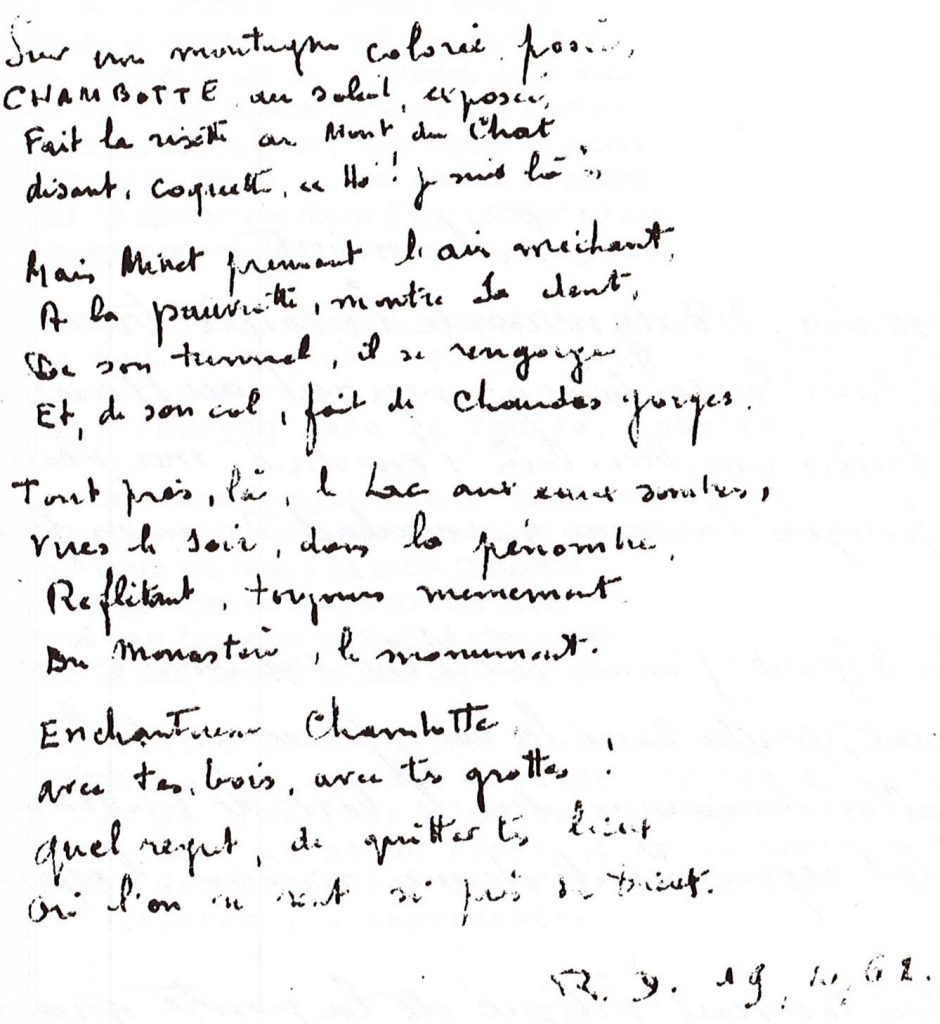 Sur une montagne colorée posée,
CHAMBOTTE au soleil, exposée,
Fait la risette au Mont du Chat
disant, coquette, ce Ho! je suis là "
Mais Minet prenant l'air méchant,
A la pauvrette, montre la dent,
De son tunnel, il se rengorge
Et, de son col, fait de chaudes gorges.
Tout près, là, le Lac aux eaux sombres,
Vues le soir, dans la pénombre,
Reflétant, toujours
Du Monastère, le monument.
Enchanteresse Chambotte,
avec tes bois, avec tes grottes,
quel regret, de quitter tes lieux
Où l'on se sent si près de Dieu.
R. D. 19, 62.